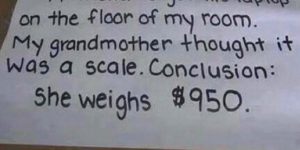 on the floor of my room.
My grandmother thought it
was a scale. Conclusion:
She weighs $950.